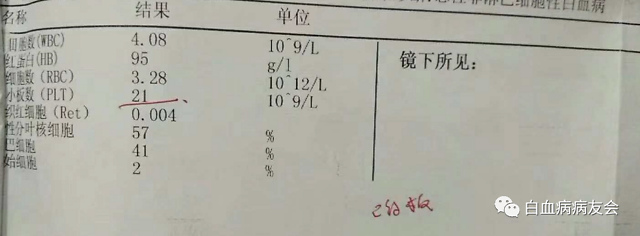 急性非淋巴细胞性白血病
名称 结果 单位
白细胞数(WBC) 4.08 10^9/L
血红蛋白(HB) 95 g/l
红细胞数(RBC) 3.28 10^12/L
血小板数(PLT) 21 10^9/L
网织红细胞(Ret) 0.004
中性分叶核细胞 57 %
淋巴细胞 41 %
原始细胞 2 %
镜下所见：
白血病病友会